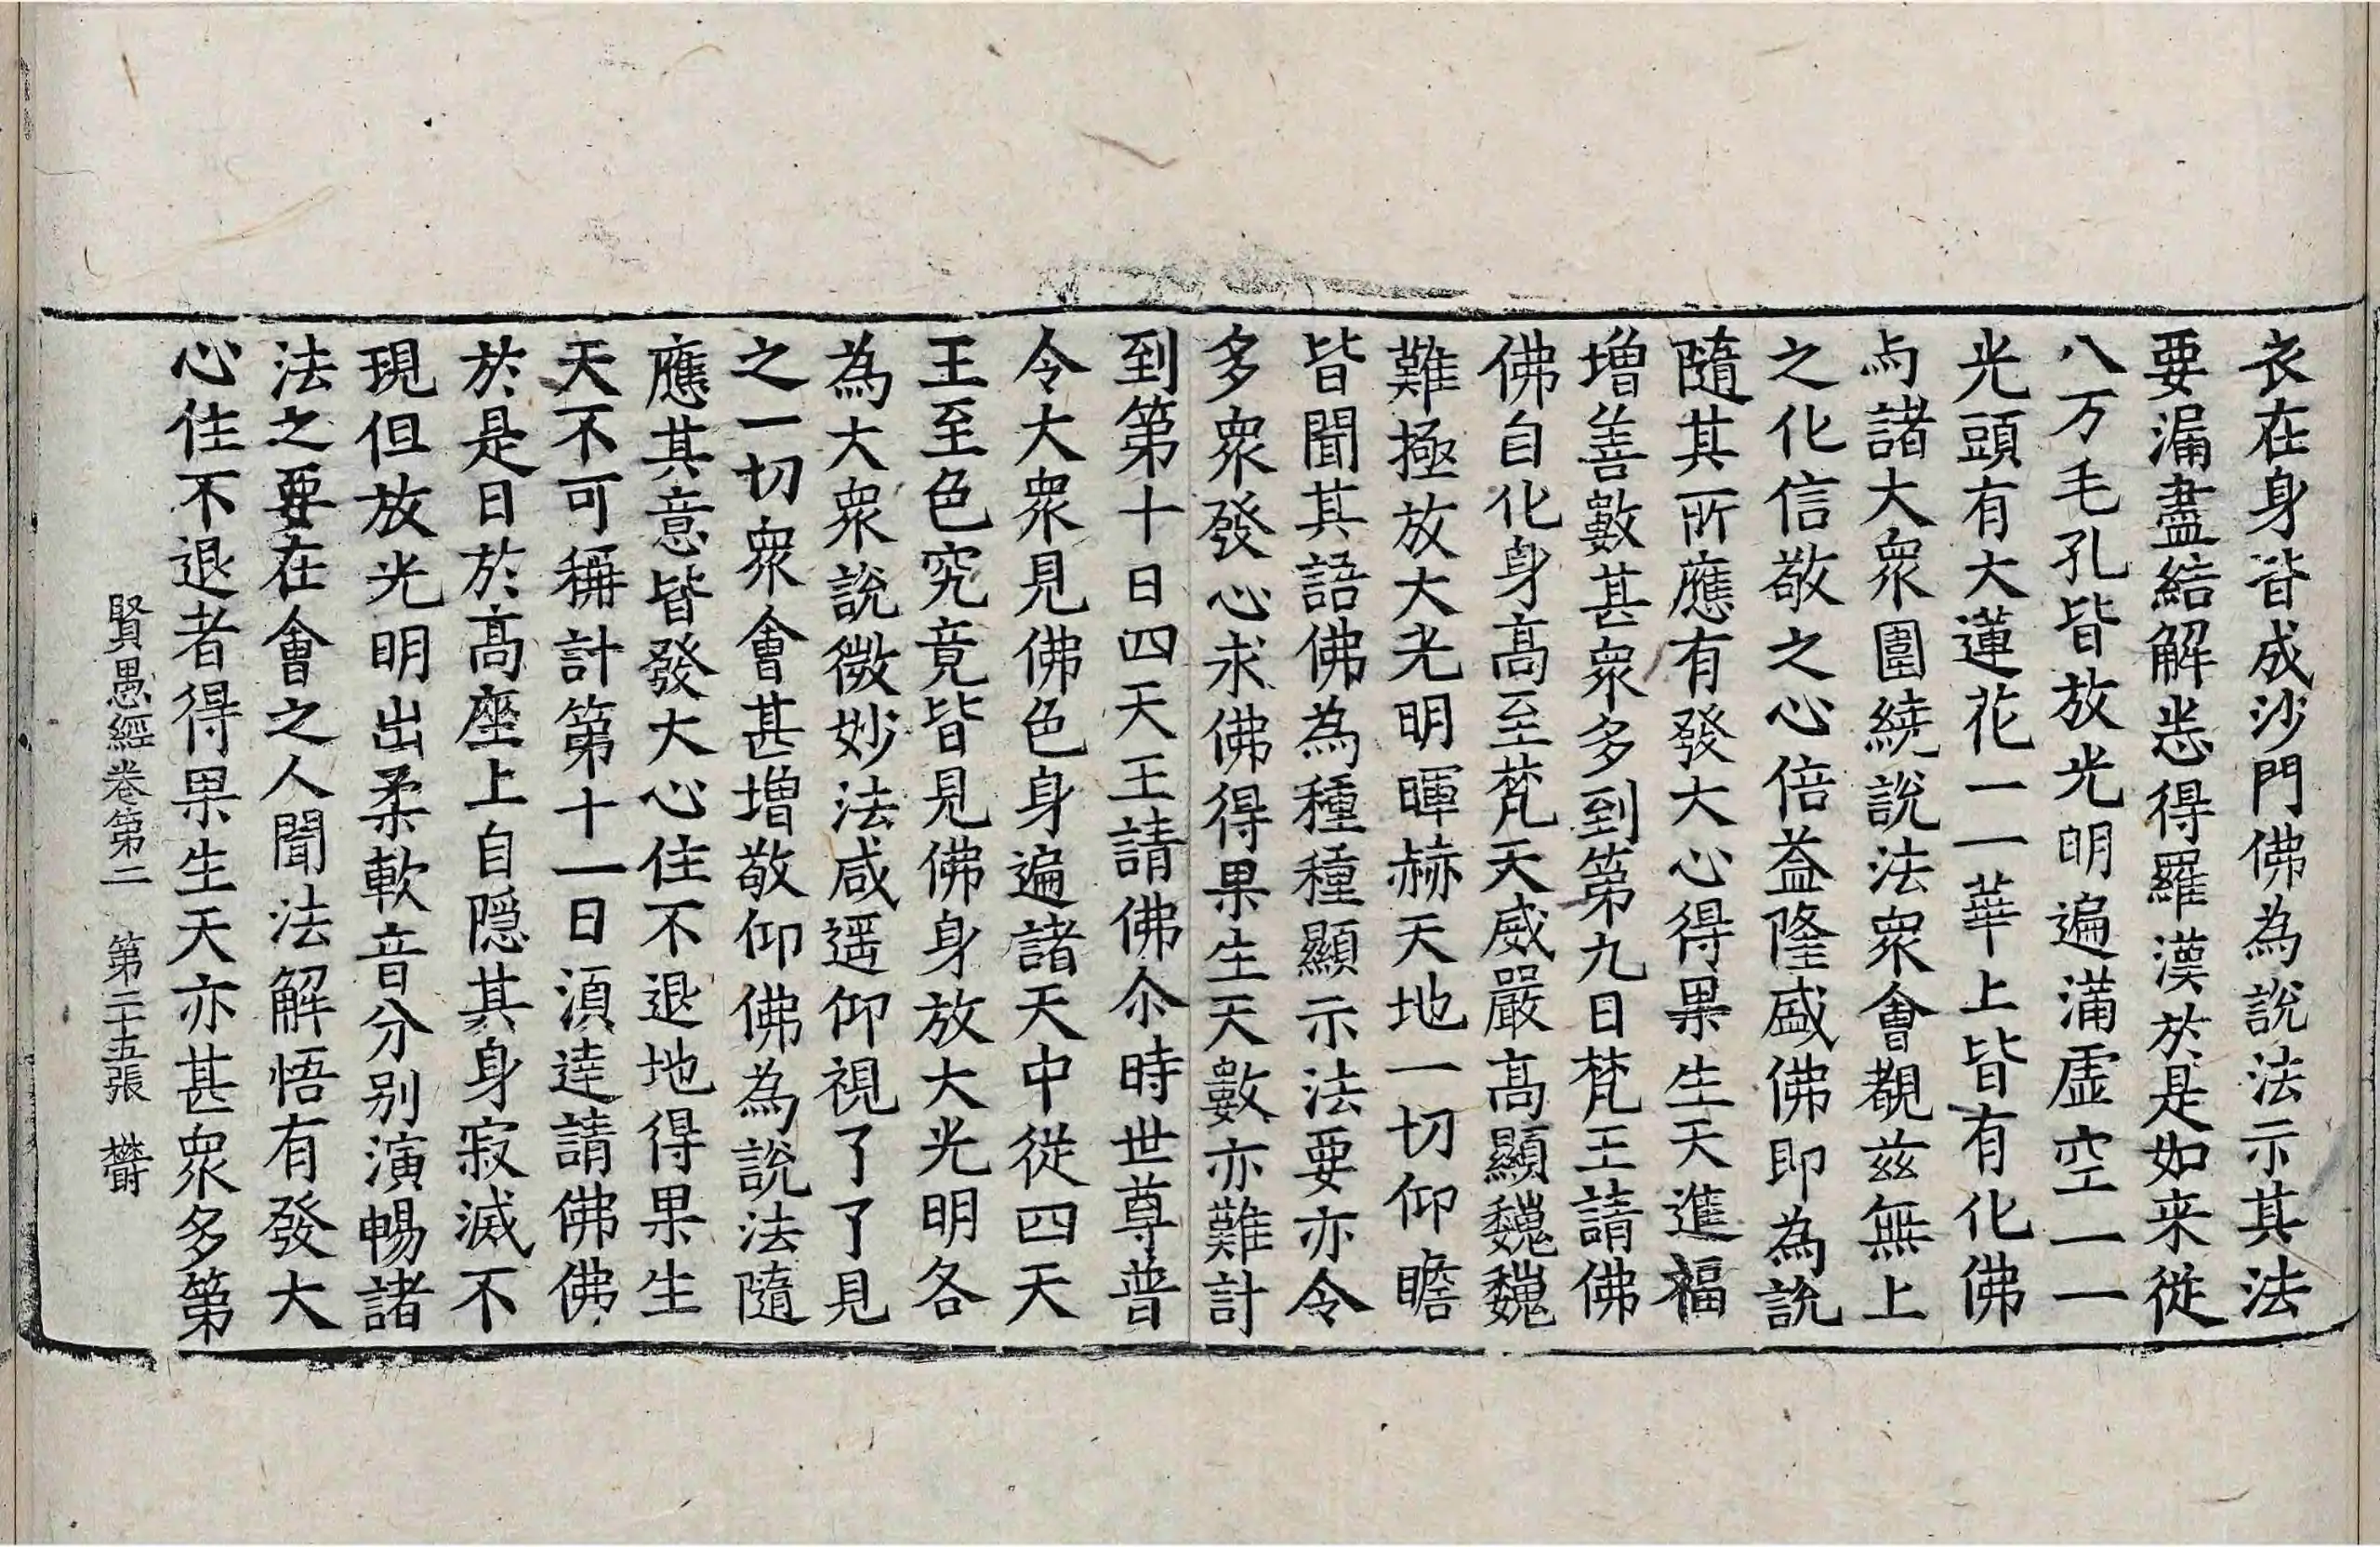 衣在身皆成沙門佛為說法示其法
要漏盡結解悉得羅漢於是如来從
八万毛孔皆放光明遍滿虛空一一
光頭有大蓮花一一華上皆有化佛
与諸大衆圍繞說法衆會覩茲無上
之化信敬之心倍益隆盛佛即為說
隨其所應有發大心得果生天進福
增善數甚衆多到第九日梵王請佛
佛自化身高至梵天威嚴高顯巍巍
難極放大光明暉赫天地一切仰瞻
皆聞其語佛為種種顯示法要亦令
多衆發心求佛得果生天數亦難計
到第十日四天王請佛尒時世尊普
令大衆見佛色身遍諸天中從四天
王至色究竟皆見佛身放大光明各
為大衆說微妙法咸遥仰視了了見
之一切衆會甚增敬仰佛為說法隨
應其意皆發大心住不退地得果生
天不可稱計第十一日湏達請佛佛
於是日於高座上自隱其身寂滅不
現但放光明出柔軟音分别演暢諸
法之要在會之人聞法解悟有發大
心住不退者得果生天亦甚衆多第
賢愚經卷第二 第二十五張 欝